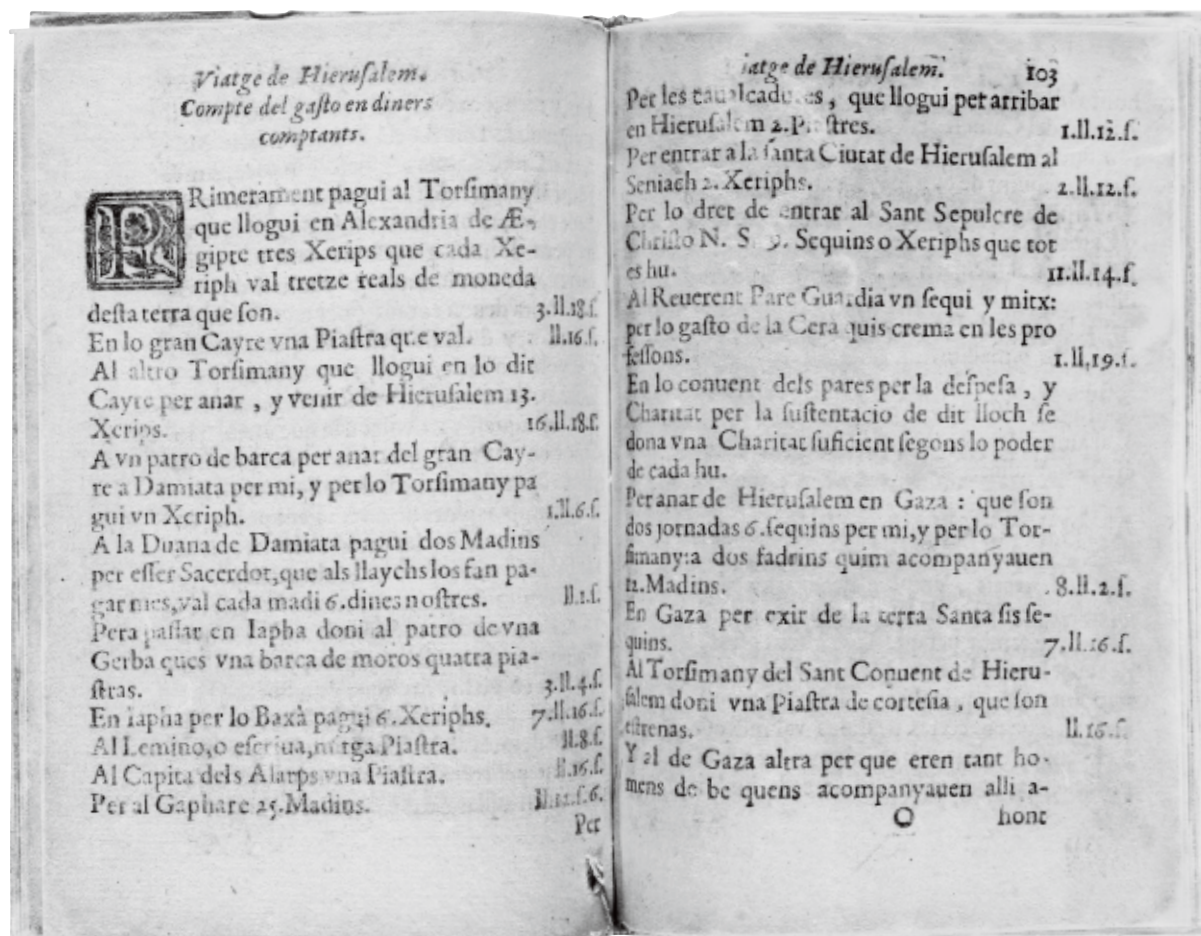 Viatge de Hierusalem.
Compte del gasto en diners
comptants.
PRimerament pagui al Torsimany
que llogui en Alexandria de Æ-
gipte tres Xerips que cada Xe-
riph val tretze reals de moneda
desta terra que son. 3.ll.18.s.
En lo gran Cayre vna Piastra que val. ll.16.s.
Al altro Torsimany que llogui en lo dit
Cayre per anar, y venir de Hierusalem 13.
Xerips. 16.ll.18.s.
A vn patro de barca per anar del gran Cay-
re a Damiata per mi, y per lo Torsimany pa
gui vn Xeriph. 1.ll.6.s.
A la Duana de Damiata pagui dos Madins
per esser Sacerdot, que als llaychs los fan pa-
gar mes, val cada madi 6. dines nostres. ll.1.s.
Pera passar en Iapha doni al patro de vna
Gerba ques vna barca de moros quatra pia-
stras. 3.ll.4.s.
En Iapha per lo Baxà pagui 6. Xeriphs. 7.ll.16.s.
Al Lemino, o escriua, mitga Piastra. ll.8.s.
Al Capita dels Alarps vna Piastra. ll.16.s.
Per al Gaphare 25. Madins. ll.12.s.6.
Per
iatge de Hierusalem. 103
Per les caualcadures, que llogui per arribar
en Hierusalem 2. Piastres. 1.ll.12.s.
Per entrar a la santa Ciutat de Hierusalem al
Seniach 2. Xeriphs. 2.ll.12.s.
Per lo dret de entrar al Sant Sepulcre de
Christo N. S 9. Sequins o Xeriphs que tot
es hu. 11.ll.14.s.
Al Reuerent Pare Guardia vn sequi y mitx:
per lo gasto de la Cera quis crema en les pro
fessons. 1.ll.19.s.
En lo conuent dels pares per la despesa, y
Charitat per la sustentacio de dit lloch se
dona vna Charitat suficient segons lo poder
de cada hu.
Per anar de Hierusalem en Gaza : que son
dos jornadas 6. sequins per mi, y per lo Tor-
simany: a dos fadrins quim acompanyauen
12. Madins. 8.ll.2.s.
En Gaza per exir de la terra Santa sis se-
quins. 7.ll.16.s.
Al Torsimany del Sant Conuent de Hieru-
salem doni vna Piastra de cortesia, que son
estrenas. ll.16.s.
Y al de Gaza altra per que eren tant ho-
mens de be quens acompanyauen alli a-
O hont